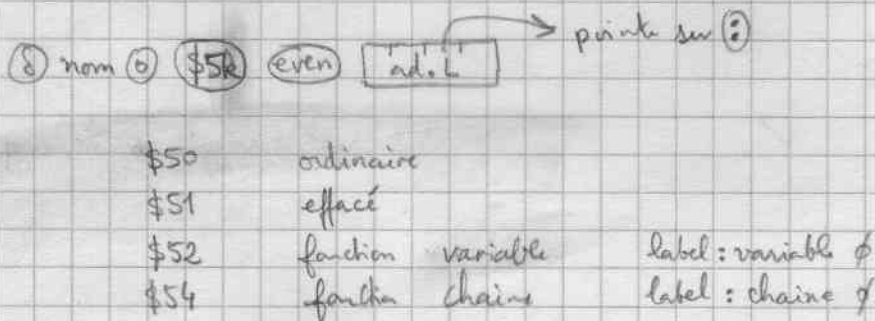 pointe sur :
8 nom 0 $5k even ad.L
$50 ordinaire
$51 effacé
$52 fonction variable label : variable ∅
$54 fonction chaine label : chaine ∅